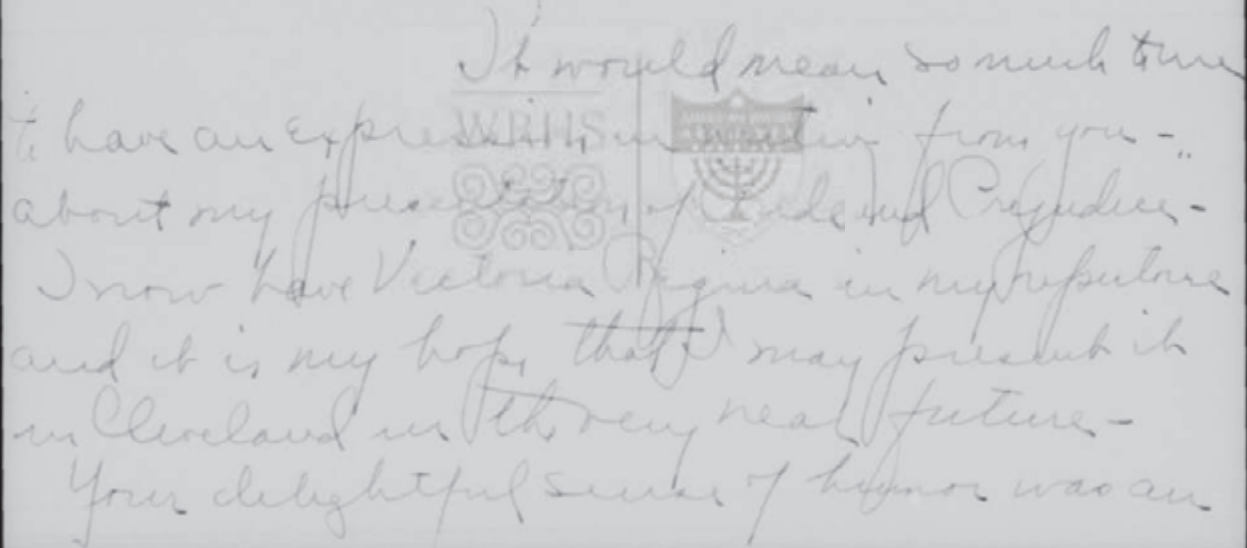 It would mean so much to me
to have an expression in writing from you -
about my presentation of Pride and Prejudice -
I now have Victoria Regina in my repertoire
and it is my hope that I may present it
in Cleveland in the very near future -
Your delightful sense of humor was an
WRHS